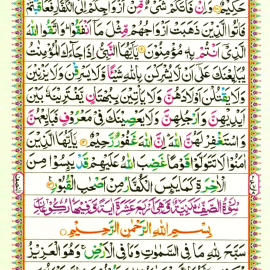 حَكِيْمٌ وَاِنْ فَاتَكُمْ شَىْءٌ مِّنْ اَزْوَاجِكُمْ اِلَى الْكُفَّارِ فَعَاقَبْتُمْ
فَاٰتُوا الَّذِيْنَ ذَهَبَتْ اَزْوَاجُهُمْ مِّثْلَ مَاۤ اَنْفَقُوْا وَاتَّقُوا اللّٰهَ
الَّذِىْۤ اَنْتُمْ بِهٖ مُؤْمِنُوْنَ يٰۤاَيُّهَا النَّبِىُّ اِذَا جَآءَكَ الْمُؤْمِنٰتُ
يُبَايِعْنَكَ عَلٰۤى اَنْ لَّا يُشْرِكْنَ بِاللّٰهِ شَيْئًا وَّلَا يَسْرِقْنَ وَلَا يَزْنِيْنَ
وَلَا يَقْتُلْنَ اَوْلَادَهُنَّ وَلَا يَاْتِيْنَ بِبُهْتَانٍ يَّفْتَرِيْنَهٗ بَيْنَ
اَيْدِيْهِنَّ وَاَرْجُلِهِنَّ وَلَا يَعْصِيْنَكَ فِىْ مَعْرُوْفٍ فَبَايِعْهُنَّ
وَاسْتَغْفِرْ لَهُنَّ اللّٰهَ اِنَّ اللّٰهَ غَفُوْرٌ رَّحِيْمٌ يٰۤاَيُّهَا الَّذِيْنَ
اٰمَنُوْا لَا تَتَوَلَّوْا قَوْمًا غَضِبَ اللّٰهُ عَلَيْهِمْ قَدْ يَئِسُوْا مِنَ
الْاٰخِرَةِ كَمَا يَئِسَ الْكُفَّارُ مِنْ اَصْحٰبِ الْقُبُوْرِ
بِسْمِ اللّٰهِ الرَّحْمٰنِ الرَّحِيْمِ
سَبَّحَ لِلّٰهِ مَا فِى السَّمٰوٰتِ وَمَا فِى الْاَرْضِ وَهُوَ الْعَزِيْزُ